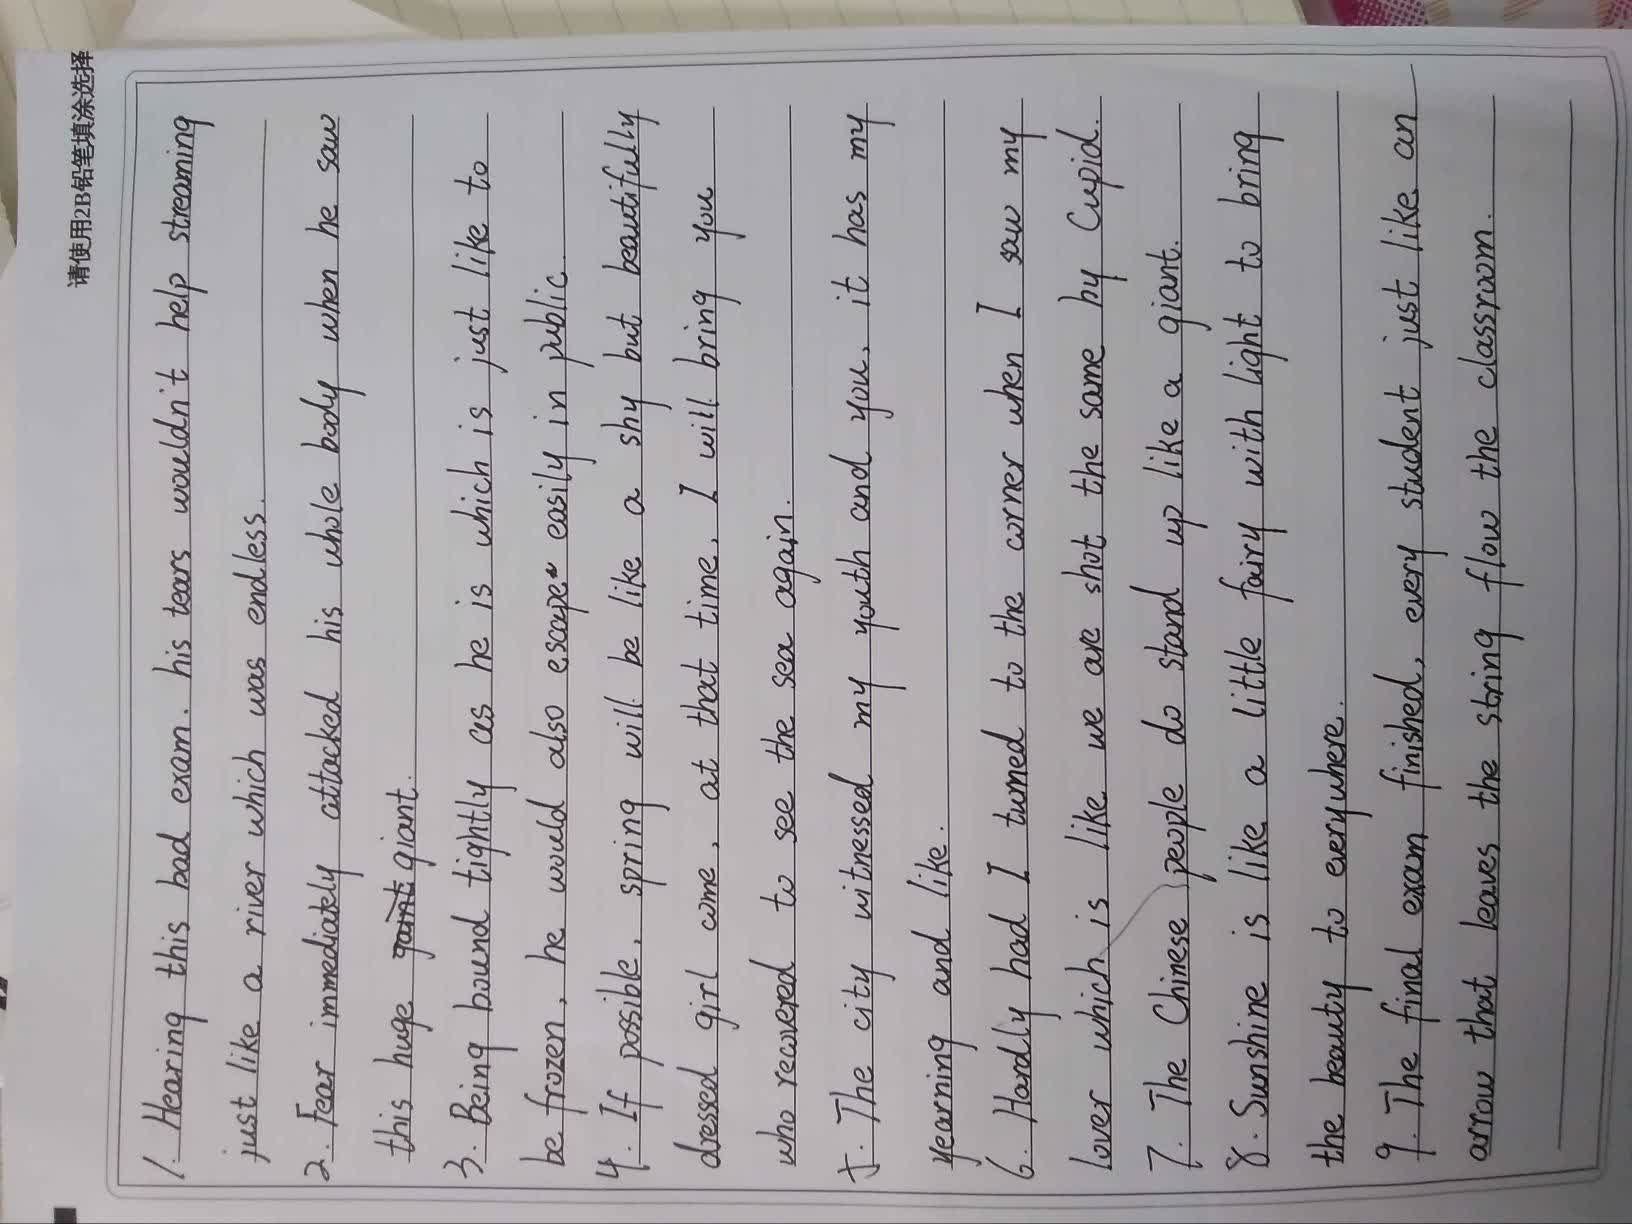 请使用2B铅笔填涂选择
1. Hearing this bad exam. his tears wouldn't help streaming
just like a river which was endless.
2. Fear immediately attacked his whole body when he saw
this huge giant.
3. Being bound tightly as he is which is just like to
be frozen, he would also escape easily in public.
4. If possible, spring will be like a shy but beautifully
dressed girl come, at that time, I will bring you
who recovered to see the sea again.
5. The city witnessed my youth and you, it has my
yearning and like.
6. Hardly had I turned to the corner when I saw my
lover which is like we are shot the same by Cupid.
7. The Chinese people do stand up like a giant.
8. Sunshine is like a little fairy with light to bring
the beauty to everywhere.
9. The final exam finished, every student just like an
arrow that leaves the string flow the classroom.